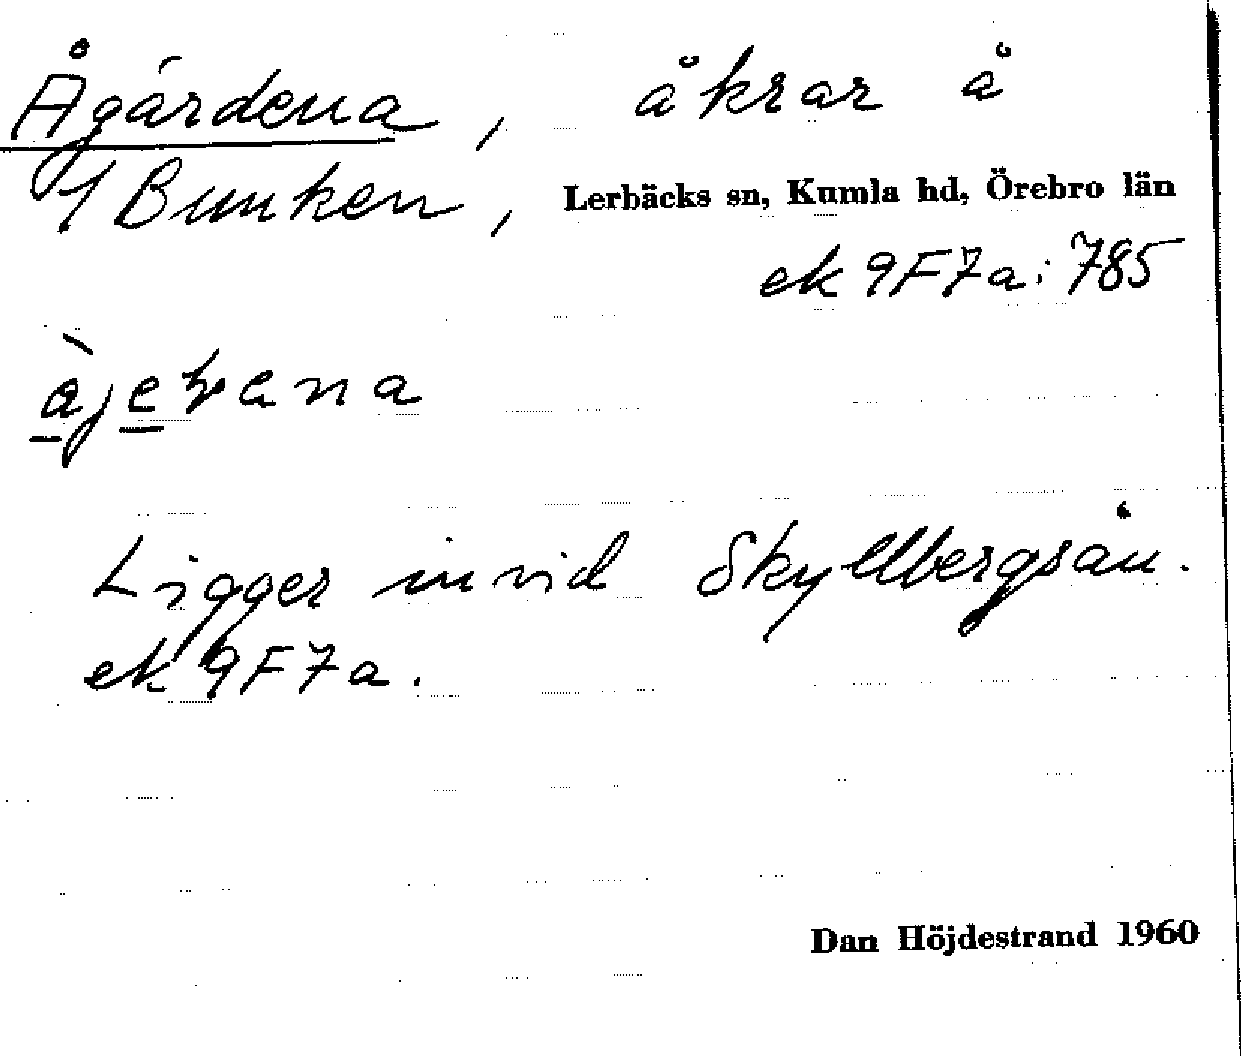 Ågärdena, åkrar å
1 Bunken, Lerbäcks sn, Kumla hd, Örebro län
ek 9F7a: 785
Ligger invid Skyllbergsån.
ek 9F7a.
Dan Höjdestrand 1960